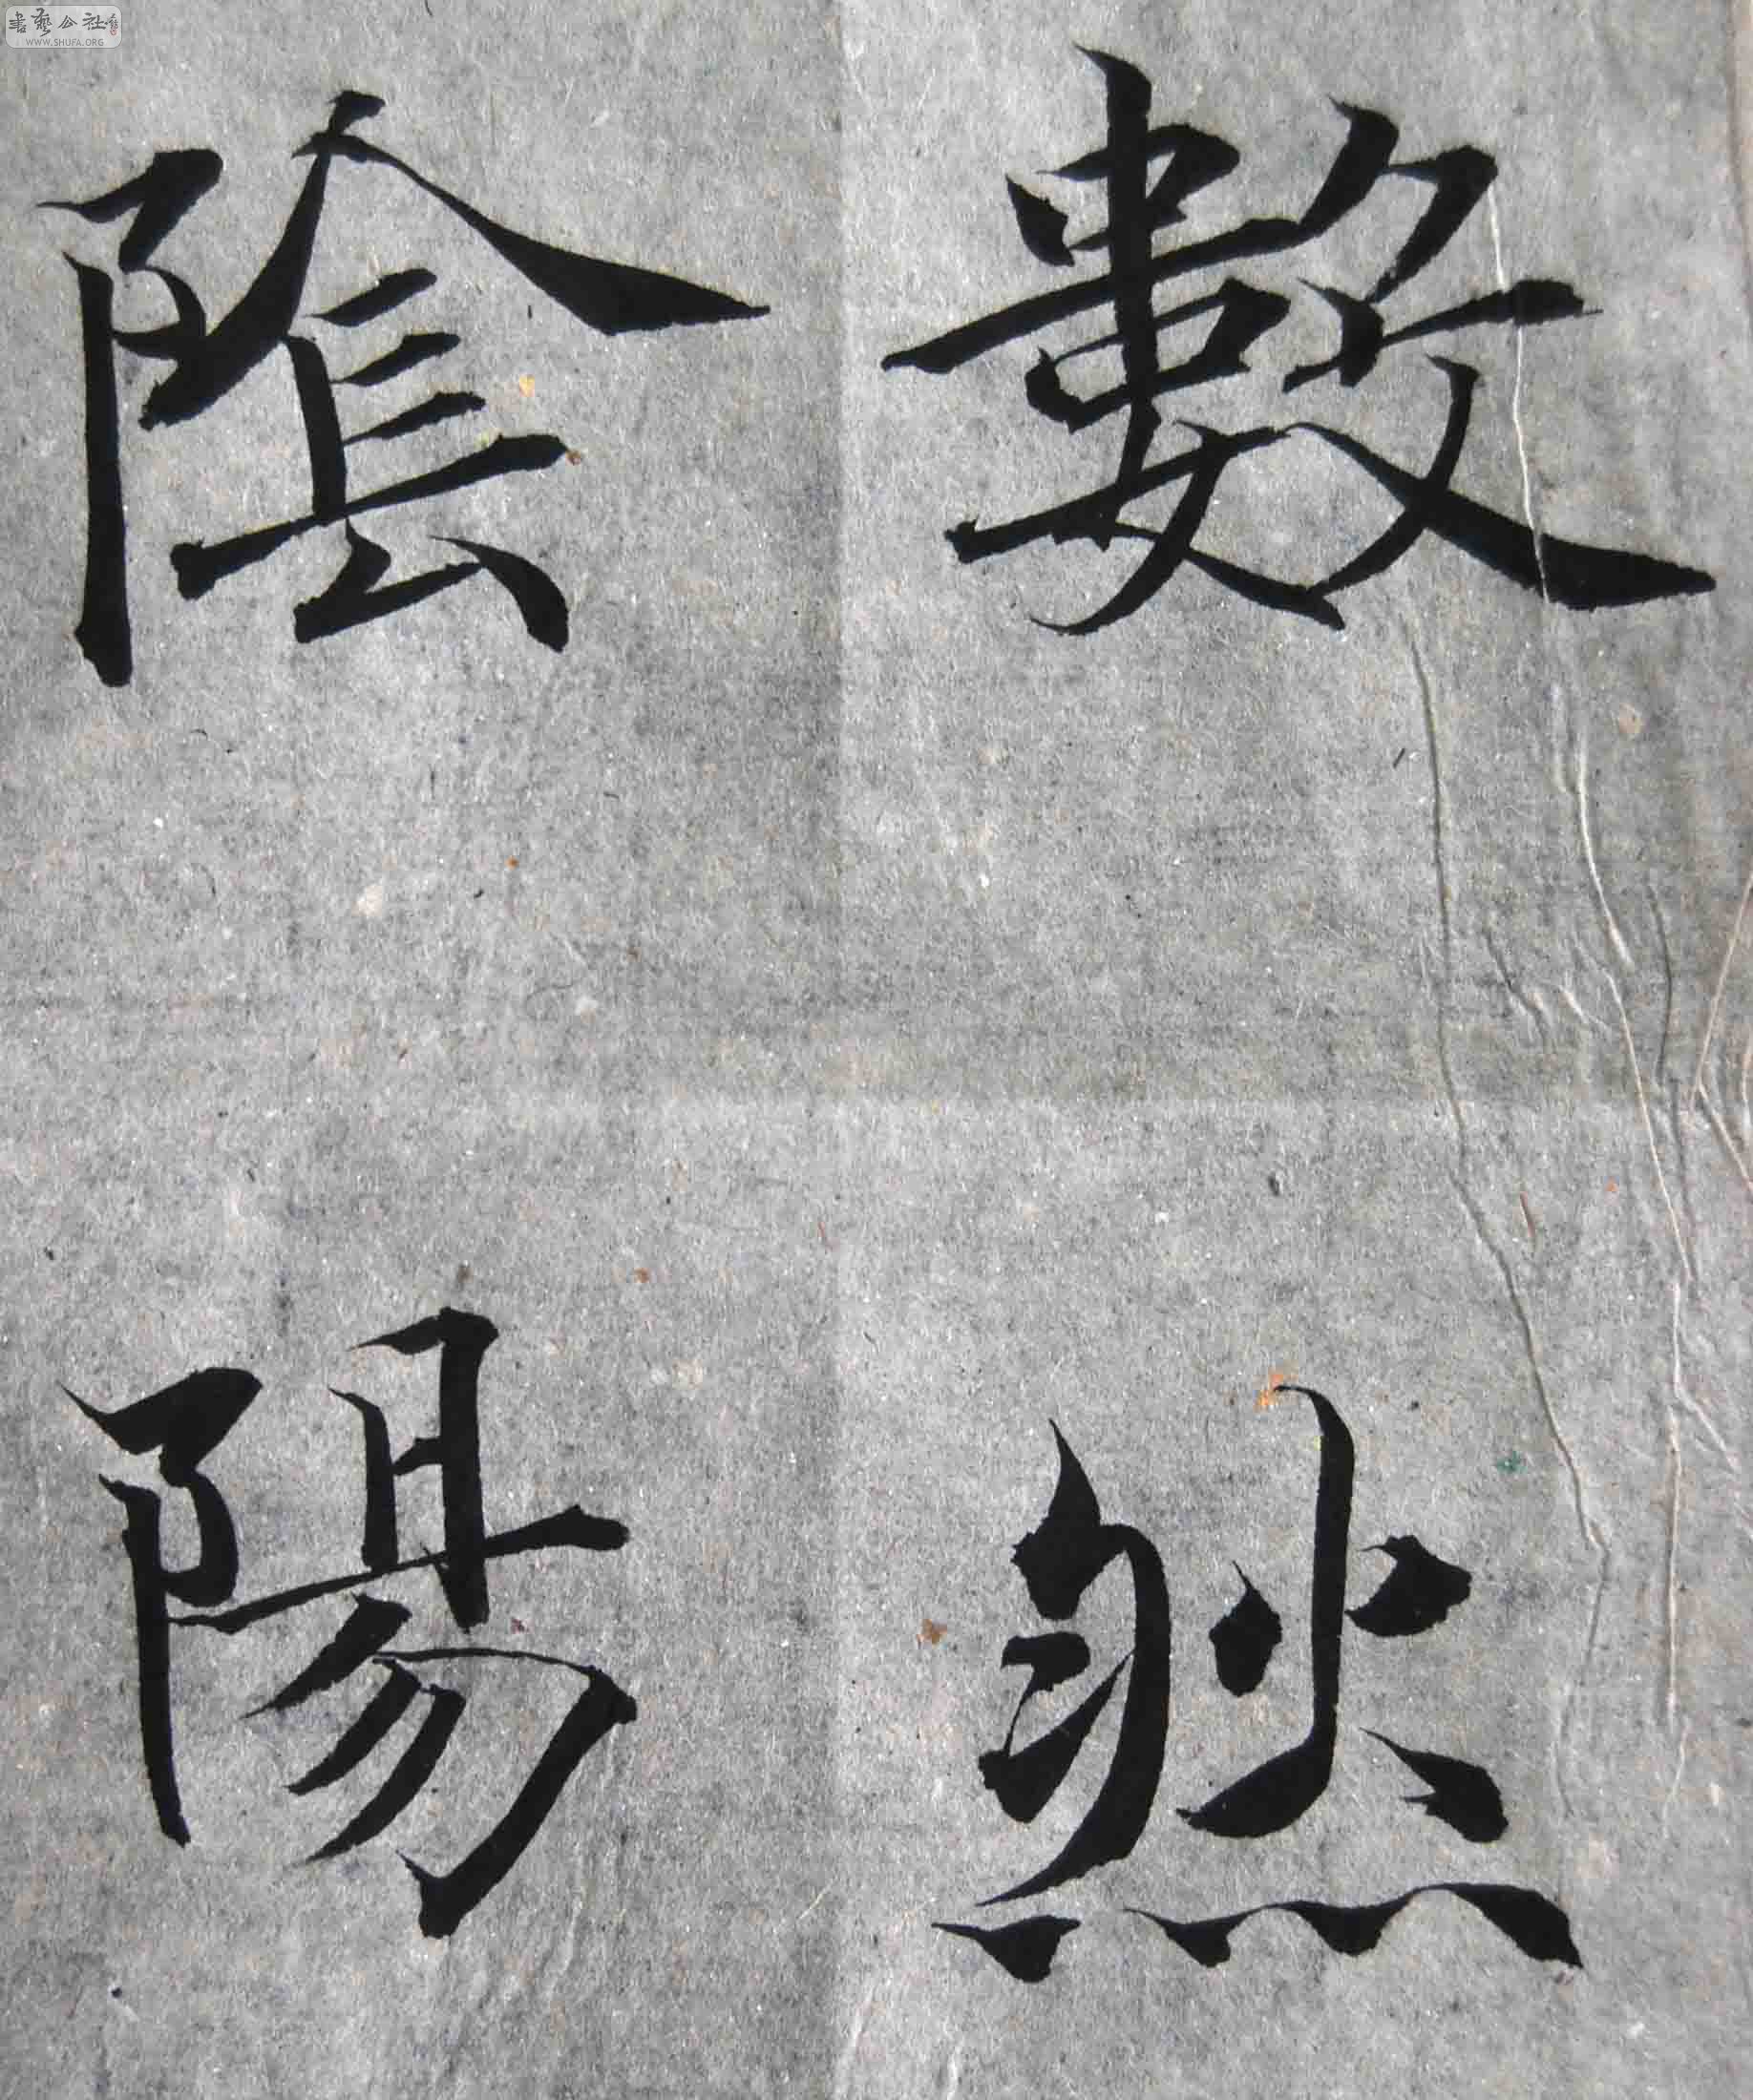 數然
陰陽
書藝公社
WWW.SHUFA.ORG